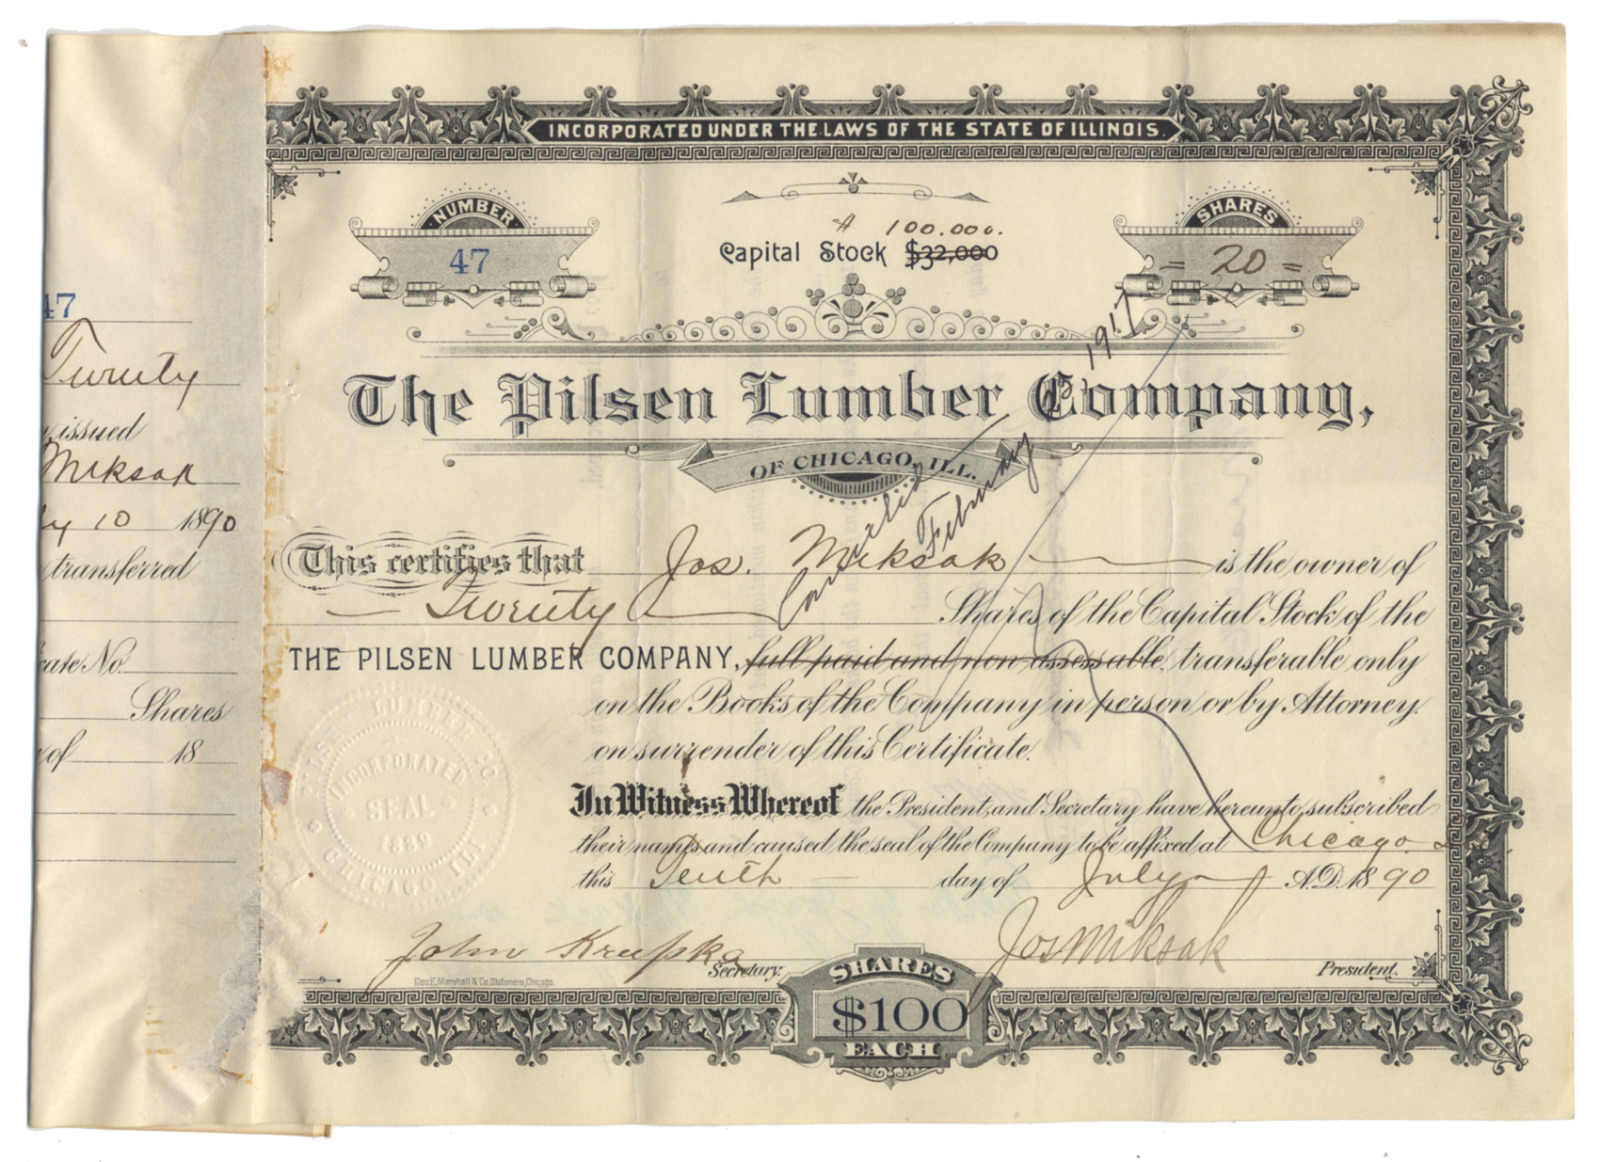 INCORPORATED UNDER THE LAWS OF THE STATE OF ILLINOIS.
NUMBER
47
$ 100.000.
Capital Stock $32,000
SHARES
= 20 =
The Pilsen Lumber Company,
OF CHICAGO, ILL.
Cancelled February 1917
This certifies that Jos. Miksak is the owner of
Twenty Shares of the Capital Stock of the
THE PILSEN LUMBER COMPANY, full paid and non assessable, transferable only
on the Books of the Company in person or by Attorney
on surrender of this Certificate.
In Witness Whereof the President and Secretary have hereunto subscribed
their names and caused the seal of the Company to be affixed at Chicago
this Tenth day of July A.D. 1890
John Krupka Secretary.
Jos Miksak President.
Geo. E. Marshall & Co. Stationers, Chicago.
SHARES
$100
EACH
PILSEN LUMBER CO.
INCORPORATED
SEAL
1889
CHICAGO ILL
47
Twenty
issued
Miksak
10 1890
transferred
cate No.
Shares
of 18